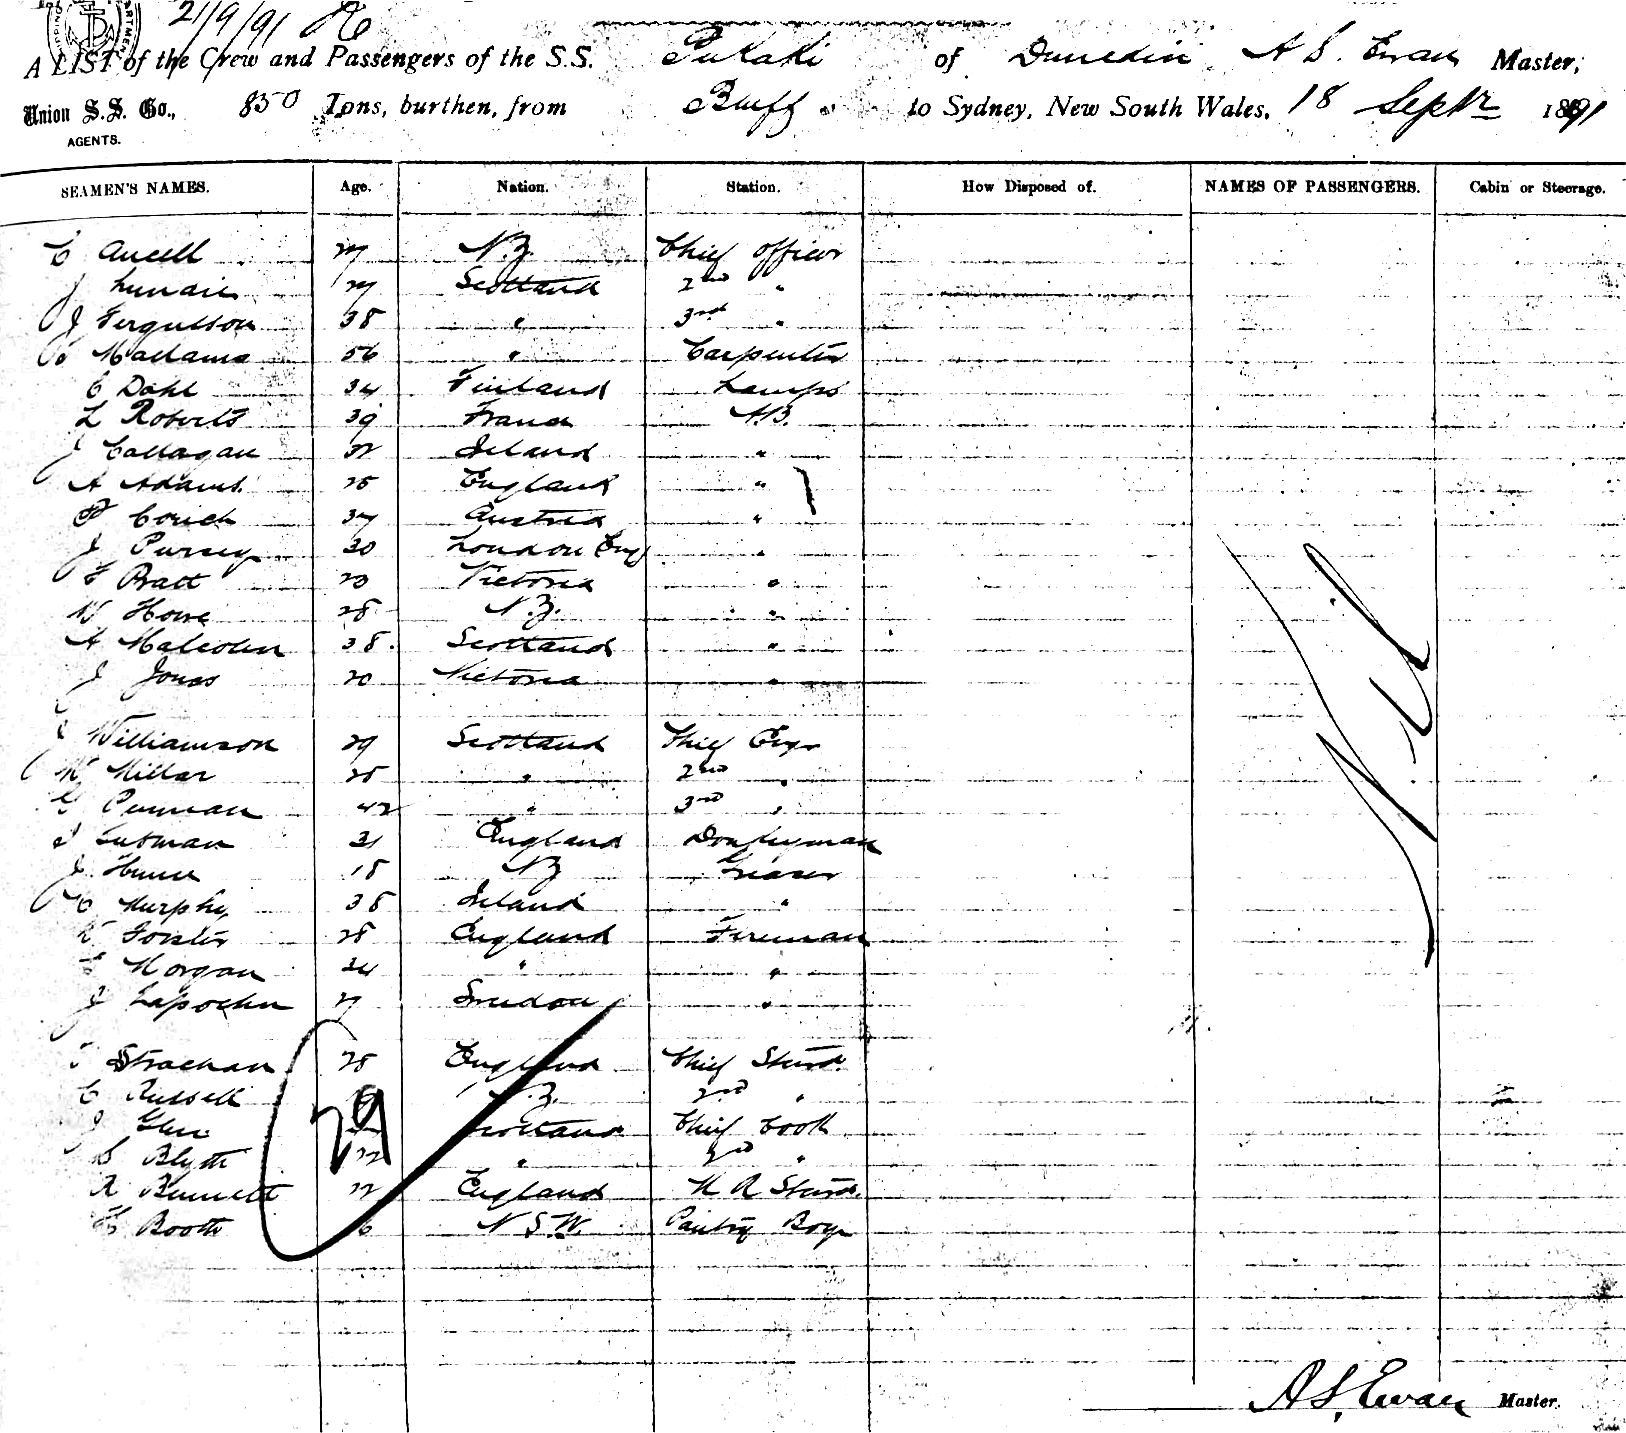 21/9/91
A LIST of the Crew and Passengers of the S.S. Pukaki of Dunedin A S. Ewan Master,
Union S.S. Co., 850 Tons, burthen, from Bluff to Sydney, New South Wales, 18 Septr 1891
AGENTS.
SEAMEN'S NAMES. Age. Nation. Station. How Disposed of. NAMES OF PASSENGERS. Cabin or Steerage.
C Ancell 27 N.Z. Chief Officer
J Lundie 27 Scotland 2nd "
J Fergusson 38 " 3rd "
56 " Carpenter
C Dahl 34 Finland Lamps
L Roberts 39 France A.B.
J Callagan 32 Ireland "
A Adams 25 England "
Couch 37 Austria "
J Pursey 30 London Eng "
Pratt 20 Victoria "
W Howe 28 N.Z. "
A Malcolm 38 Scotland "
J Jones 20 Victoria "
J Williamson 29 Scotland Chief Engr
W Millar 25 " 2nd "
Penman 42 " 3rd "
31 England Donkeyman
J Hume 18 NZ Greaser
C Murphy 38 Ireland "
Forster 28 England Fireman
Morgan 24 " "
J 27 Sweden "
Strachan 28 England Chief Stwd.
C Russell N.Z. 2nd "
J Glen Scotland Chief Cook
Blyth 22 " 2nd "
R Bennett 22 England Stwd.
Booth N S.W. Pantry Boy
29
Nil
A S. Ewan Master.